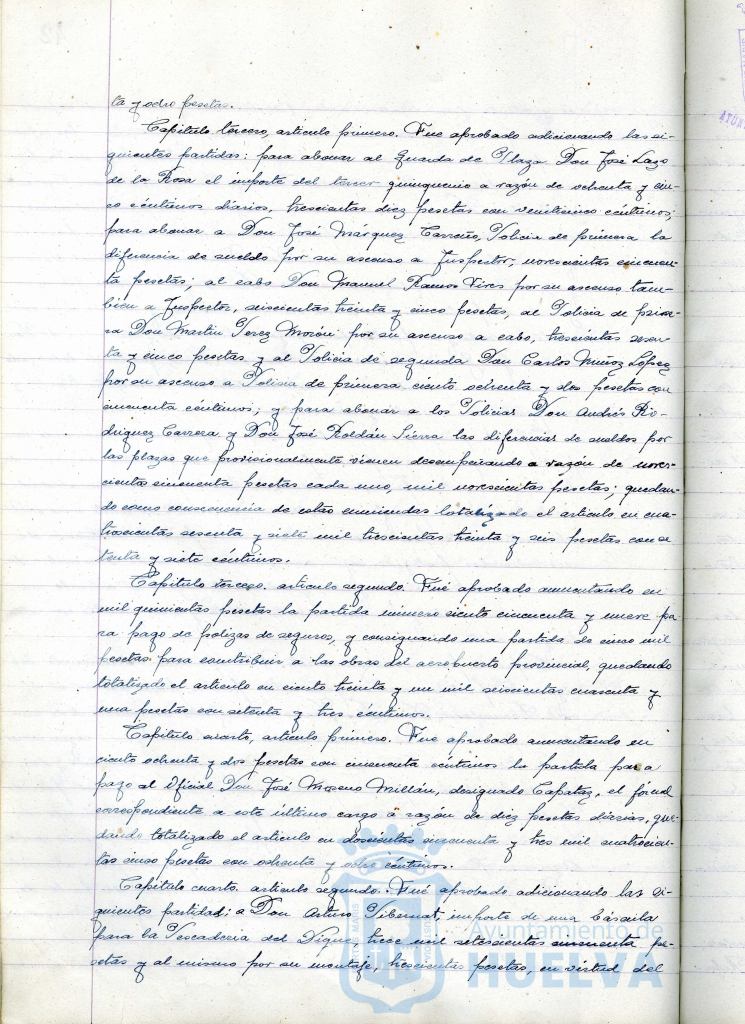 ta y ocho pesetas.
Capítulo tercero, artículo primero. Fue aprobado adicionando las si-
guientes partidas: para abonar al Guarda de Plaza Don José Lazo
de la Rosa el importe del tercer quinquenio a razón de ochenta y cin-
co céntimos diarios, trescientas diez pesetas con veinticinco céntimos;
para abonar a Don José Márquez Carreño, Policía de primera la
diferencia de sueldo por su ascenso a Inspector, novescientas cincuen-
ta pesetas; al cabo Don Manuel Ramos Vires por su ascenso tam-
bien a Inspector, seiscientas treinta y cinco pesetas, al Policía de prime-
ra Don Martín Perez Morón por su ascenso a cabo, trescientas sesen-
ta y cinco pesetas y al Policía de segunda Don Carlos Muñoz López
por su ascenso a Policía de primera ciento ochenta y dos pesetas con
cincuenta céntimos; y para abonar a los Policías Don Andrés Ro-
dríguez Carrera y Don José Roldán Sierra las diferencias de sueldos por
las plazas que provisionalmente vienen desempeñando a razón de noves-
cientas cincuenta pesetas cada uno, mil novescientas pesetas; quedan-
do como consecuencia de estas enmiendas totalizado el artículo en cua-
troscientas sesenta y siete mil trescientas treinta y seis pesetas con se
tenta y siete céntimos.
Capítulo tercero. artículo segundo. Fué aprobado aumentando en
mil quinientas pesetas la partida número ciento cincuenta y nueve pa-
ra pago de polizas de seguros, y consignando una partida de cinco mil
pesetas para contribuir a las obras del aeropuerto provincial, quedando
totalizado el artículo en ciento treinta y un mil seiscientas cuarenta y
una pesetas con setenta y tres céntimos.
Capítulo cuarto, artículo primero. Fue aprobado aumentando en
ciento ochenta y dos pesetas con cincuenta céntimos la partida para
pago al Oficial Don José Moreno Millán, designado Capataz, el jornal
correspondiente a este último cargo a razón de diez pesetas diarias, que-
dando totalizado el artículo en doscientas cincuenta y tres mil cuatrocien-
tas cinco pesetas con ochenta y ocho céntimos.
Capítulo cuarto. artículo segundo. Fué aprobado adicionando las si-
guientes partidas: a Don Arturo Tibernat, importe de una báscula
para la Pescadería del Dique, trece mil setescientas cuarenta pe-
setas y al mismo por su montaje, trescientas pesetas, en virtud del
Ayuntamiento de
HUELVA